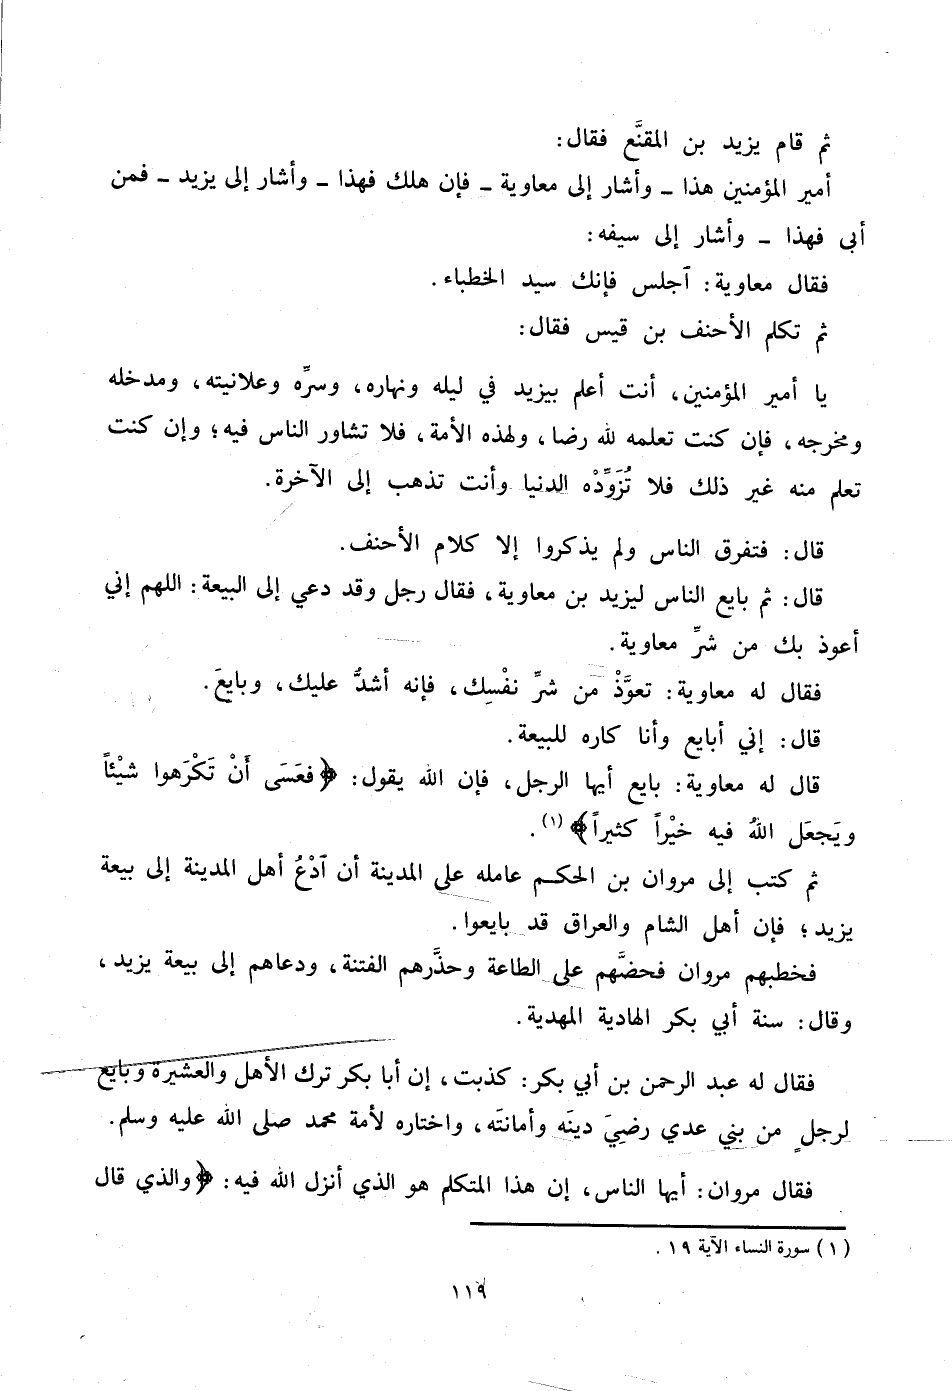 ثم قام يزيد بن المقنَّع فقال:
أمير المؤمنين هذا ـ وأشار إلى معاوية ـ فإن هلك فهذا ـ وأشار إلى يزيد ـ فمن
أبى فهذا ـ وأشار إلى سيفه:
فقال معاوية: آجلس فإنك سيد الخطباء.
ثم تكلم الأحنف بن قيس فقال:
يا أمير المؤمنين، أنت أعلم بيزيد في ليله ونهاره، وسرِّه وعلانيته، ومدخله
ومخرجه، فإن كنت تعلمه لله رضا، ولهذه الأمة، فلا تشاور الناس فيه؛ وإن كنت
تعلم منه غير ذلك فلا تُزَوِّدْه الدنيا وأنت تذهب إلى الآخرة.
قال: فتفرق الناس ولم يذكروا إلا كلام الأحنف.
قال: ثم بايع الناس ليزيد بن معاوية، فقال رجل وقد دعي إلى البيعة: اللهم إني
أعوذ بك من شرِّ معاوية.
فقال له معاوية: تعوَّذْ من شرِّ نفْسِك، فإنه أشدُّ عليك، وبايعَ.
قال: إني أبايع وأنا كاره للبيعة.
قال له معاوية: بايع أيها الرجل، فإن الله يقول: ﴿فعَسَى أَنْ تَكْرَهوا شيْئاً
ويَجعَل اللهُ فيه خيْراً كثيراً﴾(١).
ثم كتب إلى مروان بن الحكم عامله على المدينة أن آدْعُ أهل المدينة إلى بيعة
يزيد؛ فإن أهل الشام والعراق قد بايعوا.
فخطبهم مروان فحضَّهم على الطاعة وحذَّرهم الفتنة، ودعاهم إلى بيعة يزيد،
وقال: سنة أبي بكر الهادية المهدية.
فقال له عبد الرحمن بن أبي بكر: كذبت، إن أبا بكر ترك الأهل والعشيرة وبايع
لرجلٍ من بني عدي رضيَ دينَه وأمانتَه، واختاره لأمة محمد صلى الله عليه وسلم.
فقال مروان: أيها الناس، إن هذا المتكلم هو الذي أنزل الله فيه: ﴿والذي قال
(١) سورة النساء الآية ١٩.
١١٩